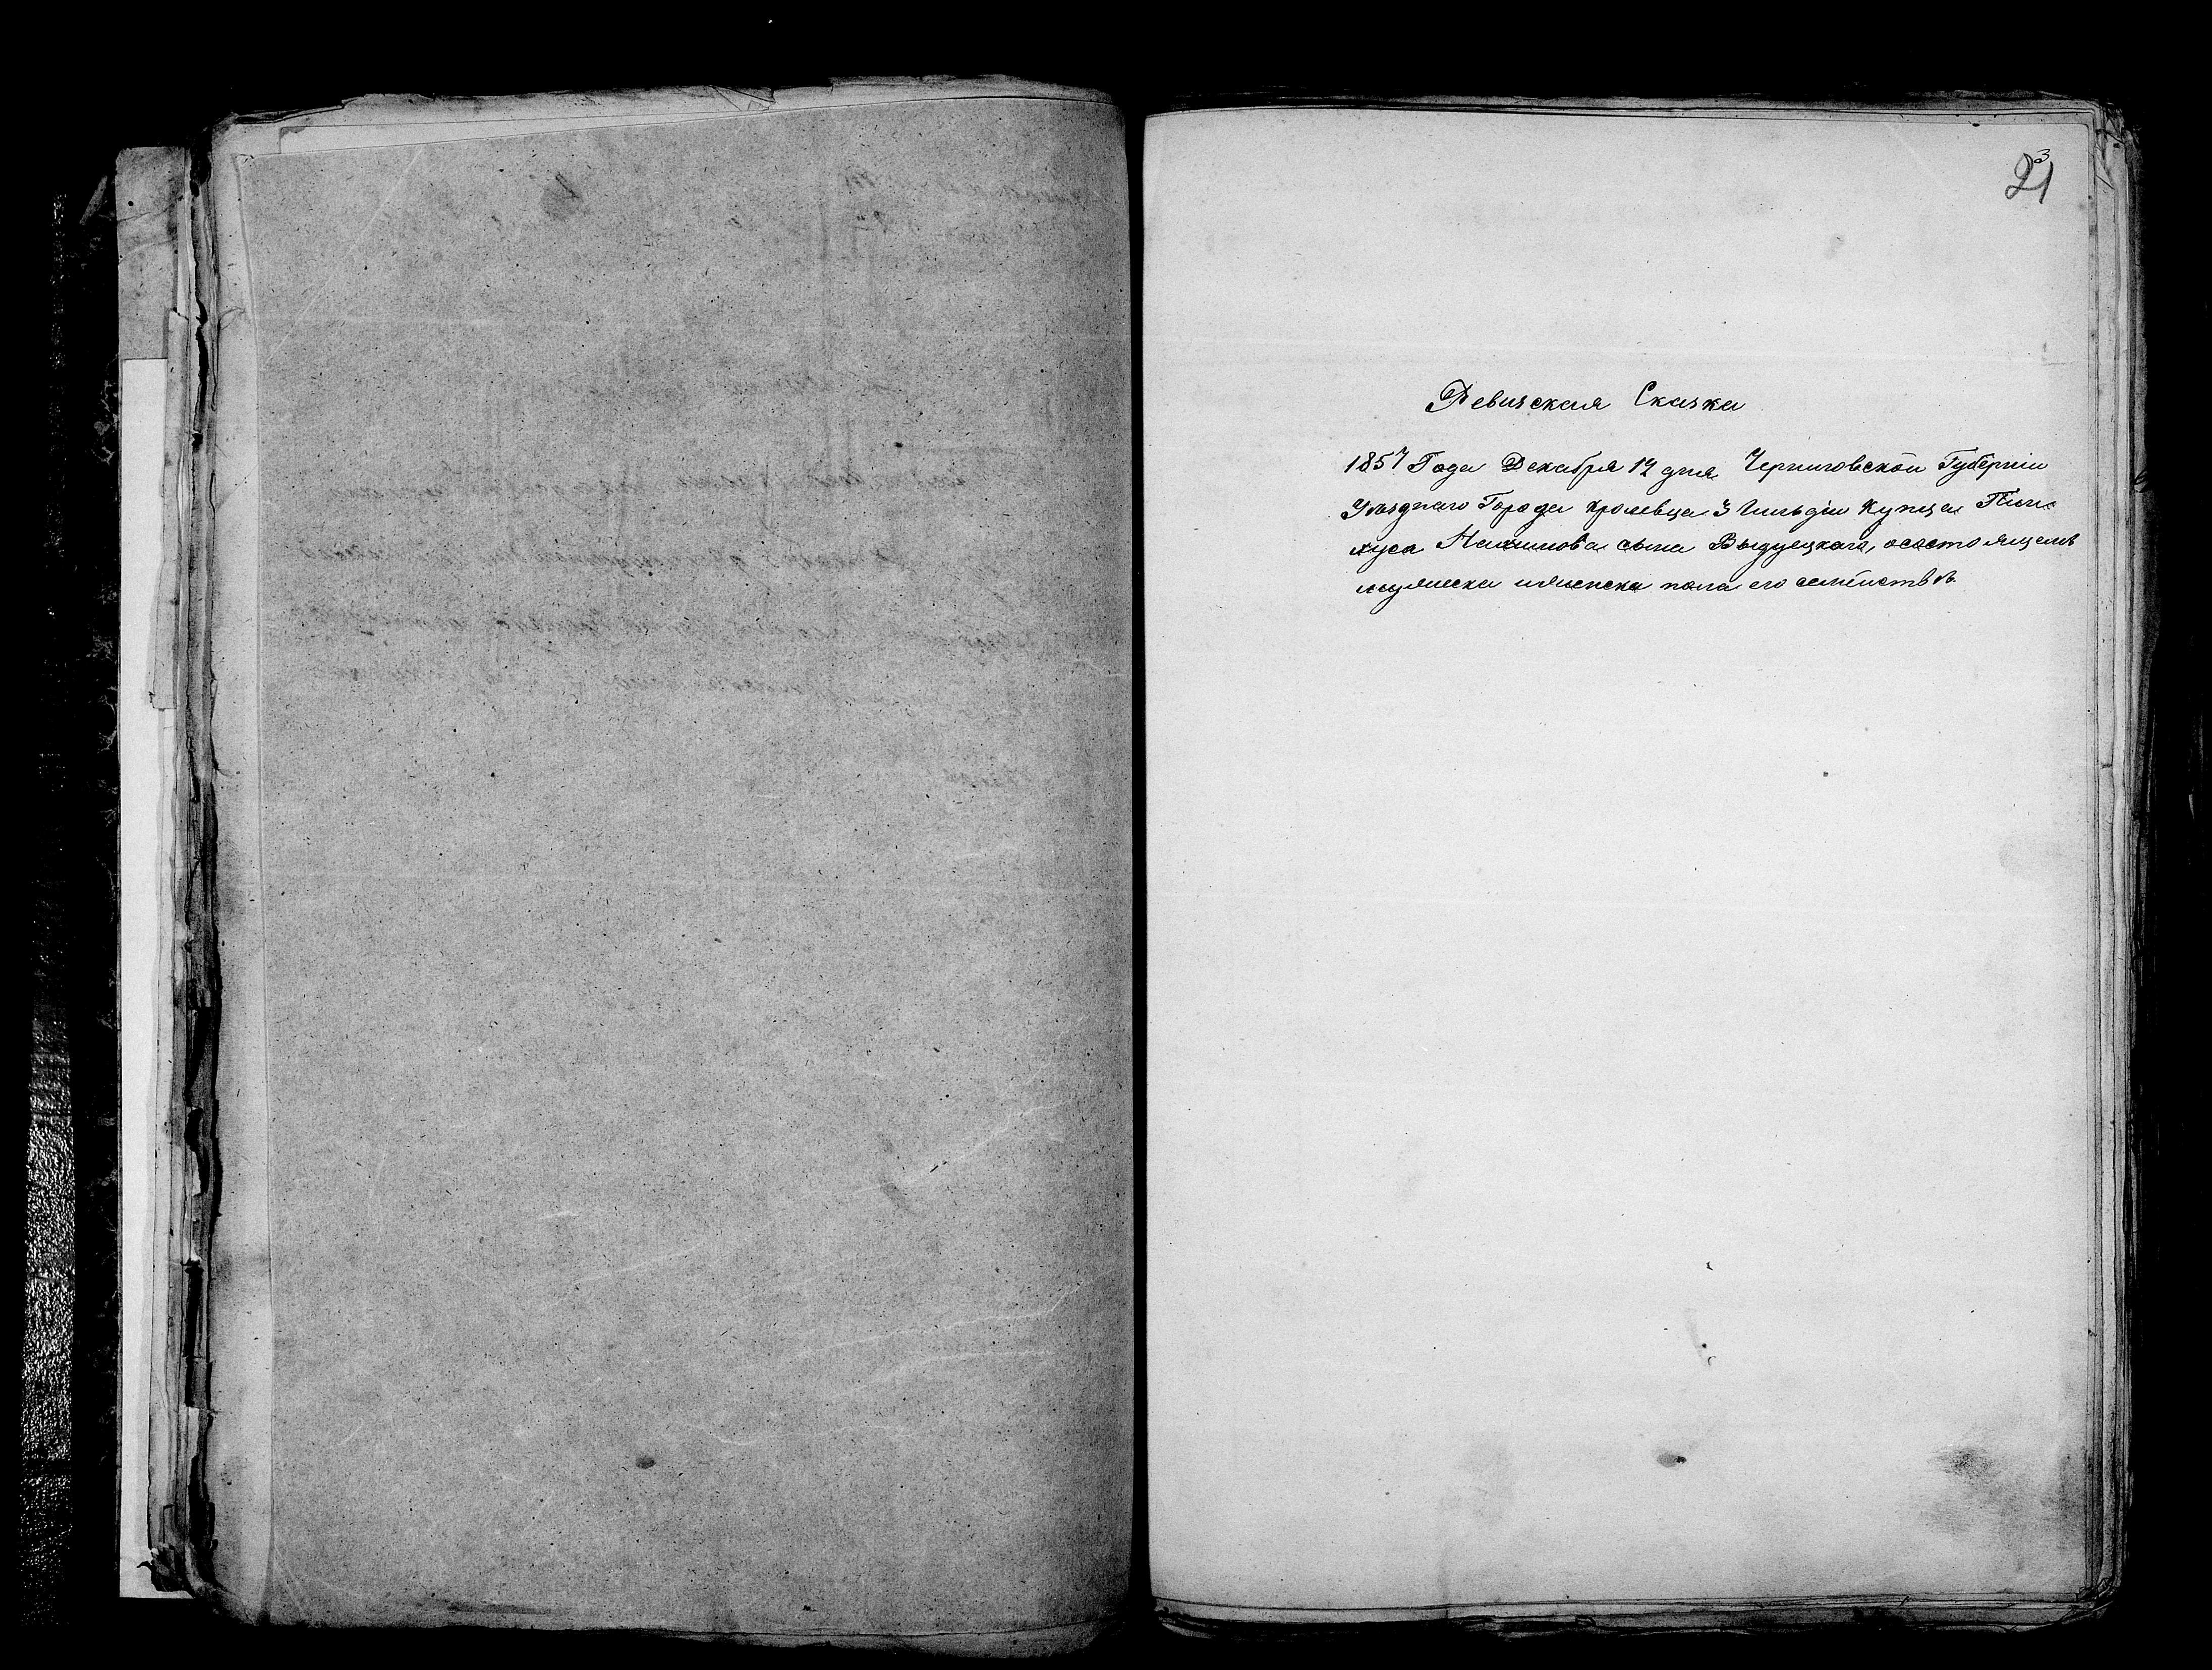 3
21
Ревизская Сказка
1857 Года Декабря 12 дня Черниговской Губернiи
Уѣзднаго Города Кролевца 3 Гильдiи Купца Пин-
хуса Нахимова сына Выдуецкаго, осостоящемъ
мужеска иженска пола его семействѣ